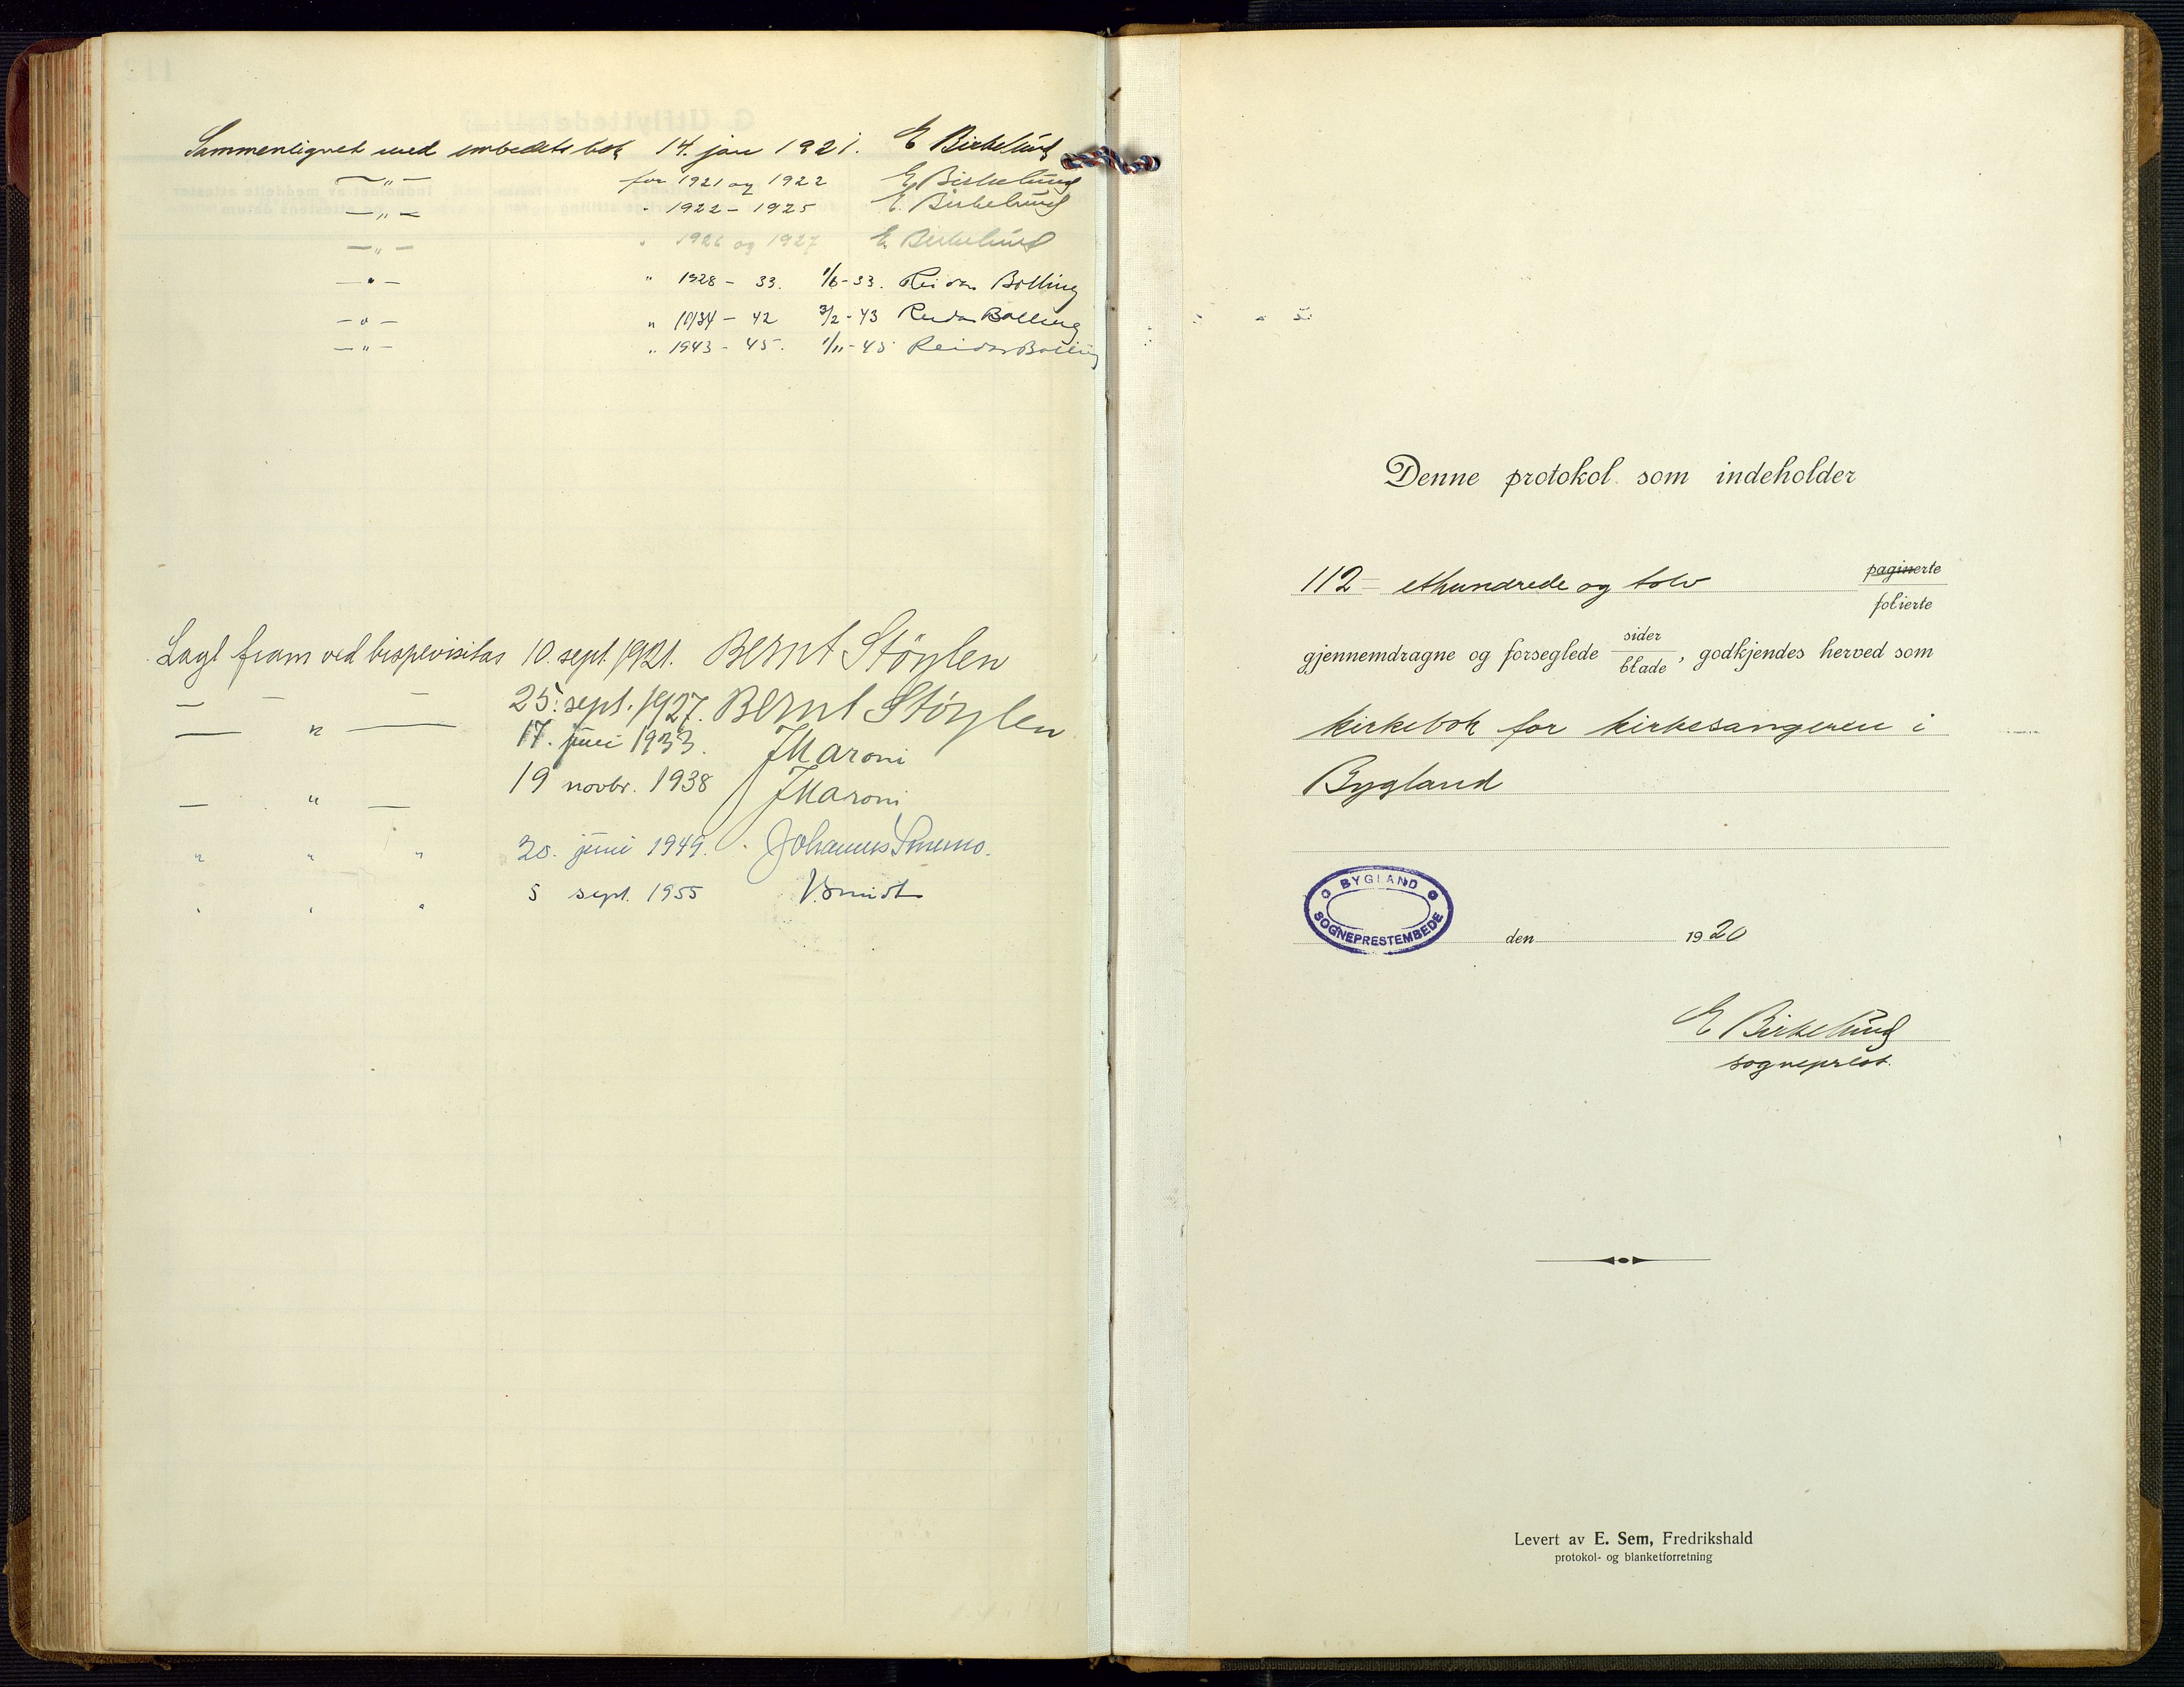 Sammenlignet med embedets bok 14. jan 1921. E Birkelund
— " — for 1921 og 1922 E Birkelund
— " — " 1922 - 1925 E. Birkelund
— " — " 1926 og 1927 E. Birkelund
— " — " 1928 - 33. 1/6-33. Reidar Bolling
— " — " 1934 - 42 3/2-43 Reidar Bolling
— " — " 1943 - 45. 1/11-45 Reidar Bolling
Lagt fram ved bispevisitas 10. sept. 1921. Bernt Støylen
— — — 25. sept. 1927. Bernt Støylen
— " — 17. juni 1933. J Maroni
— " — 19 novbr. 1938 J Maroni
" " " 20. juni 1949. Johannes Smemo.
" " " 5 sept. 1955 J. Smidt
Denne protokol som indeholder
112 = ethundrede og tolv paginerte
folierte
gjennemdragne og forseglede sider
blade, godkjendes herved som
kirkebok for kirkesangeren i
Bygland
BYGLAND
SOGNEPRESTEMBEDE
den 1920
E Birkelund
sogneprest.
Levert av E. Sem, Fredrikshald
protokol- og blanketforretning